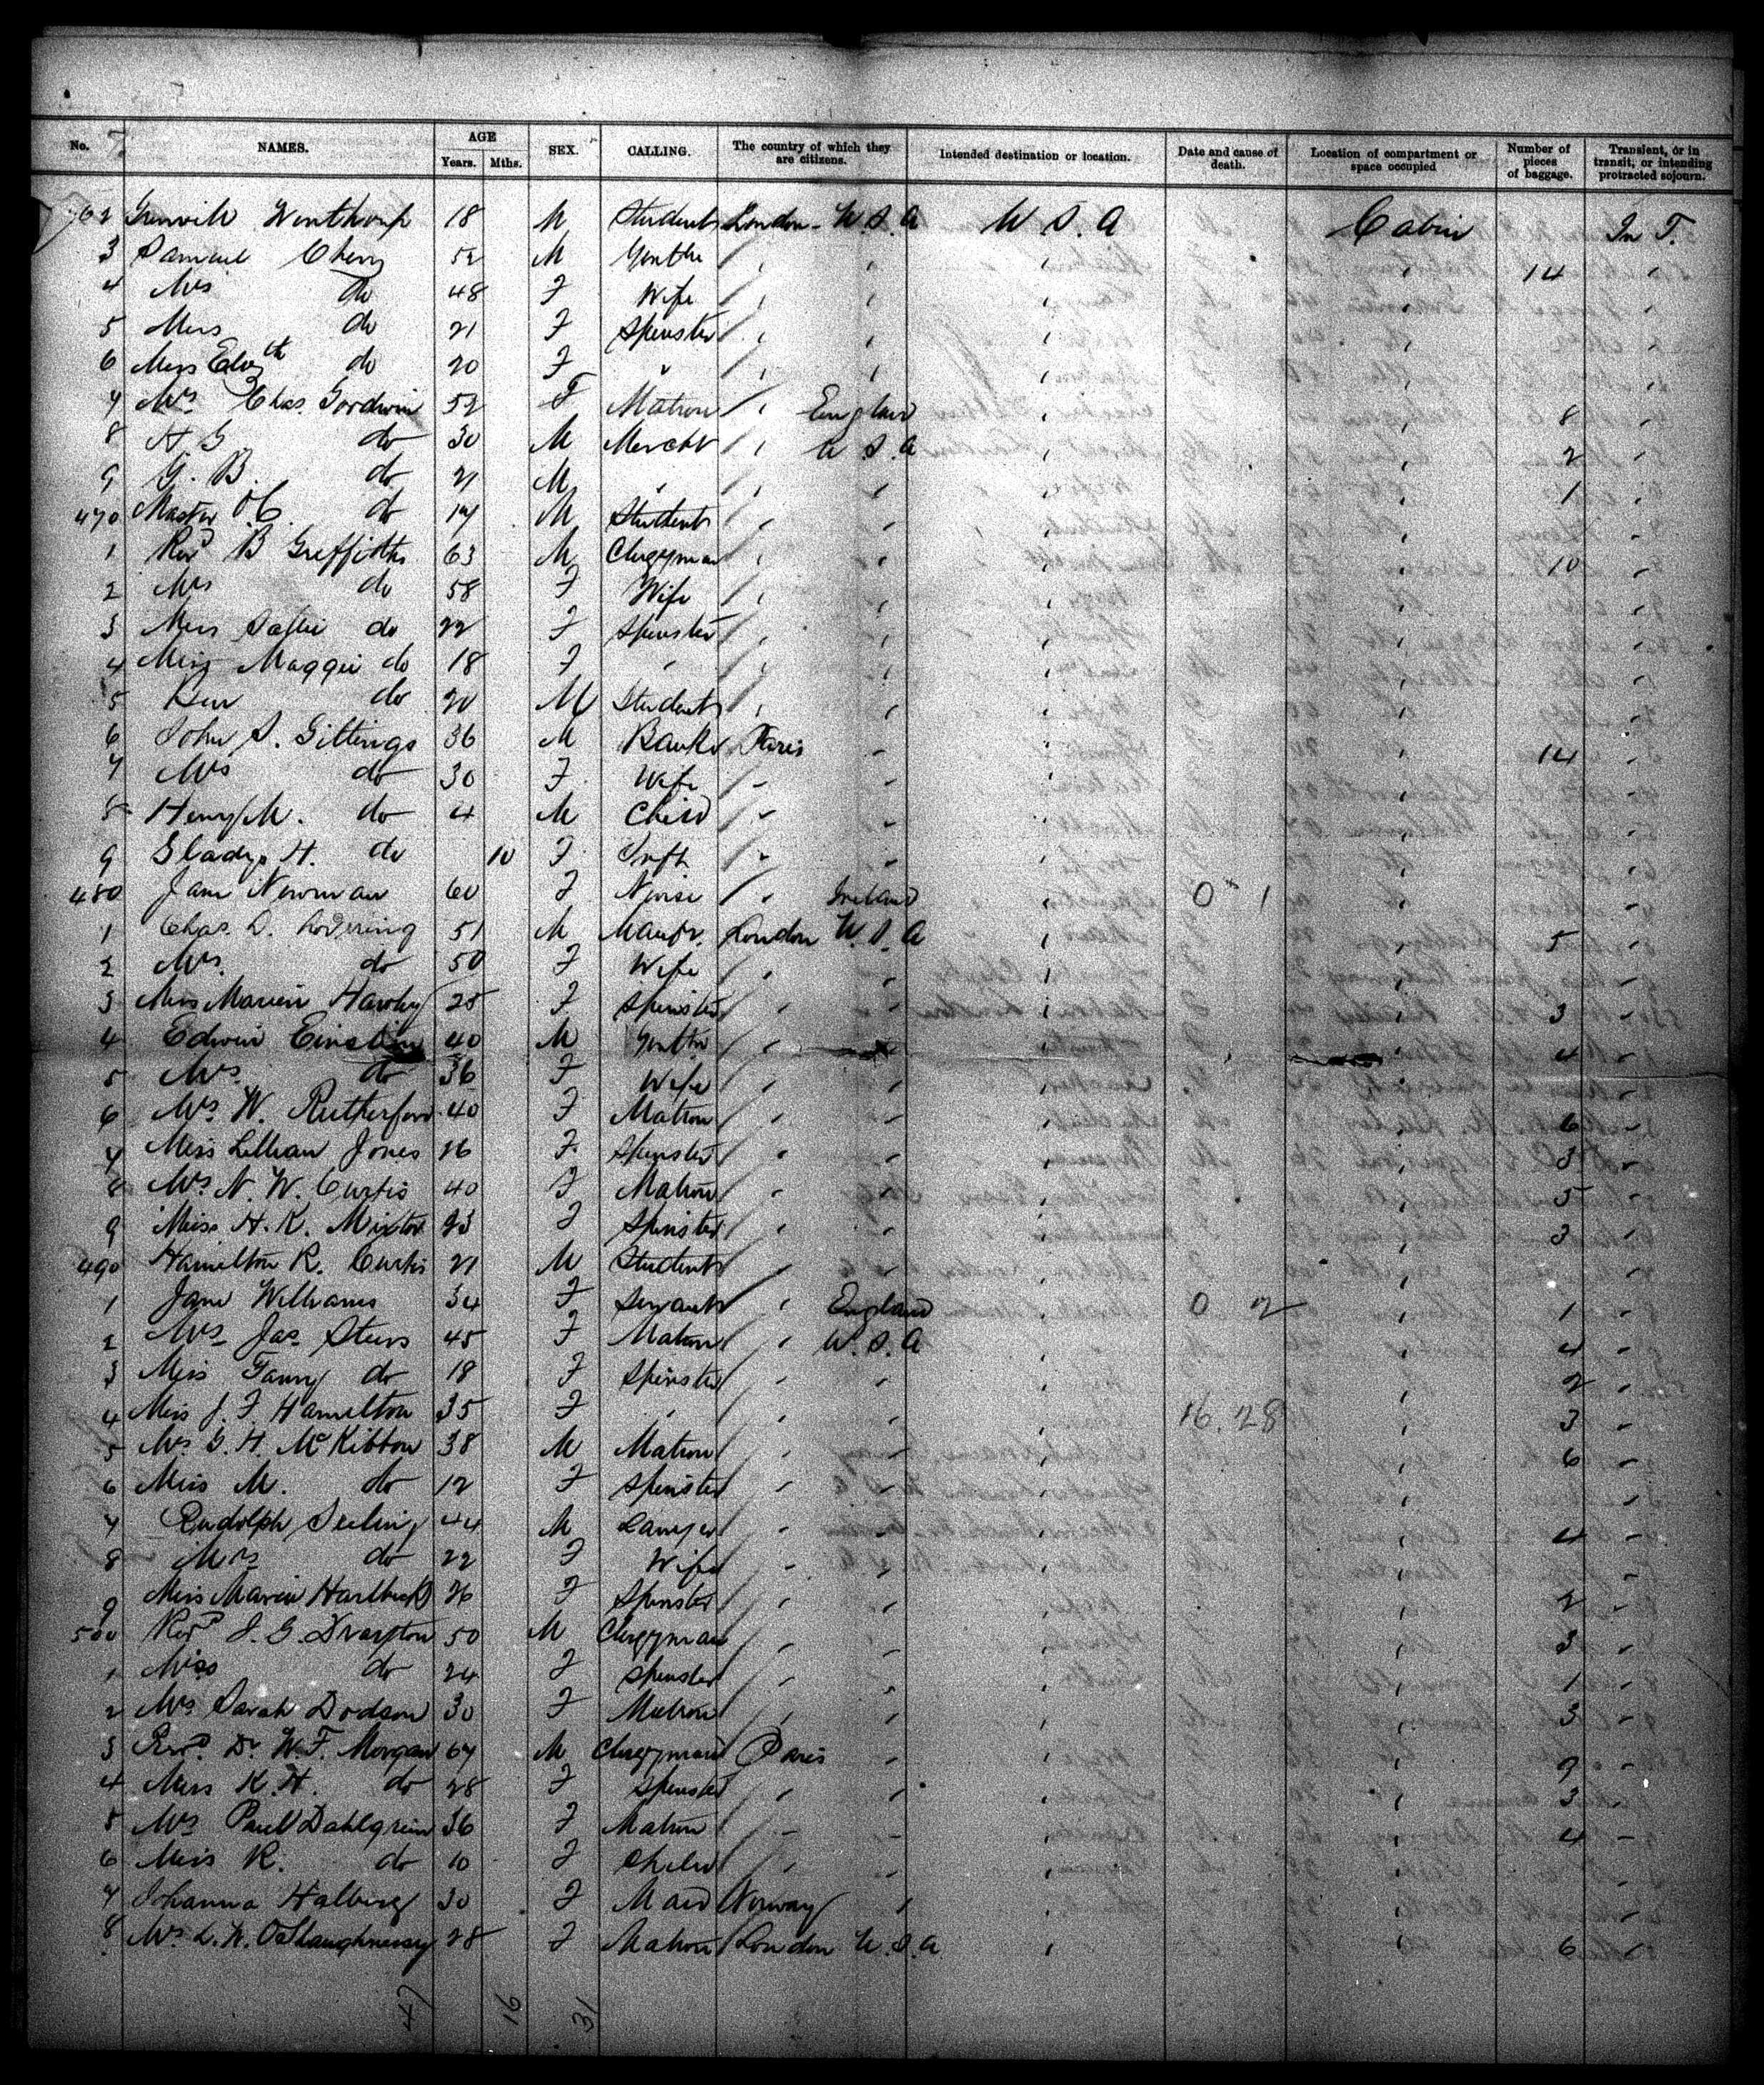 No. NAMES. AGE Years. Mths. SEX. CALLING. The country of which they are citizens. Intended destination or location. Date and cause of death. Location of compartment or space occupied Number of pieces of baggage. Transient, or in transit, or intending protracted sojourn.
62 Winthrop 18 M Student London - U.S.A U S. A Cabin In T.
3 Samuel Cherry 52 M " " " " 14 "
4 Mrs do 48 F Wife " " " " "
5 Miss do 21 F Spinster " " " " "
6 Miss Elizth do 20 F " " " " " "
7 Mrs Chas. Goodwin 52 F Matron " England " " 8 "
8 H G do 30 M Mercht " U S. A " " 2 "
9 G. B. do 21 M " " " " " 1 "
470 Master do M Student " " " " "
1 Revd B Griffiths 63 M Clergyman " " " " 10 "
2 Mrs do 58 F Wife " " " " "
3 Miss Sallie do 22 F Spinster " " " " "
4 Miss Maggie do 18 F " " " " " "
5 do 20 M Student " " " " "
6 John S. Gittings 36 M Banker Paris " " " 14 "
7 Mrs do 30 F Wife " " " " "
8 Henry M. do 4 M Child " " " " "
9 Gladys H. do 10 F Inft " " " " "
480 Jane Newman 60 F Nurse " Ireland " 0 1 " "
1 Chas. D. Lovering 51 M Manfr. London U. S. A " " 5 "
2 Mrs. do 50 F Wife " " " " "
3 Miss Marion Hawley 25 F Spinster " " " " 3 "
4 Edwin Einstein 40 M " " " 4 "
5 Mrs. do 36 F Wife " " " " "
6 Mrs W. Rutherford 40 F Matron " " " " 6 "
7 Miss Lillian Jones 26 F Spinster " " " " 3 "
8 Mrs N. W. Curtis 40 F Matron " " " " 5 "
9 Miss H. K. 23 F Spinster " " " " 3 "
490 Hamilton R. Curtis 21 M Student " " " " "
1 Jane Williams 34 F Servant " England " 0 2 " 1 "
2 Mrs Jas 45 F Matron " U. S. A " " 4 "
3 Miss Fanny do 18 F Spinster " " " " 2 "
4 Miss J. F. Hamilton 35 F " " " " 16. 28 " 3 "
5 Mrs G. H. McKibbon 38 M Matron " " " " 6 "
6 Miss M. do 12 F Spinster " " " " "
7 Rudolph 44 M Lawyer " " " " 4 "
8 Mrs do 22 F Wife " " " " "
9 Miss Marie 26 F Spinster " " " " 2 "
500 Revd J. G. Drayton 50 M Clergyman " " " " 3 "
1 Miss do 24 F Spinster " " " " 1 "
2 Mrs Sarah Dodson 30 F Matron " " " " 3 "
3 Revd. Dr W. F. Morgan 67 M Clergyman Paris " " " 9 "
4 Miss K. H. do 28 F Spinster " " " " 3 "
5 Mrs Paul Dahlgrein 36 F Matron " " " " 4 "
6 Miss R. do 10 F Child " " " " "
7 Johanna Halberg 30 F Maid Norway " " " "
8 Mrs L. W. O'Shaughnessy 28 F Matron London U. S. A " " 6 "
47 16 31